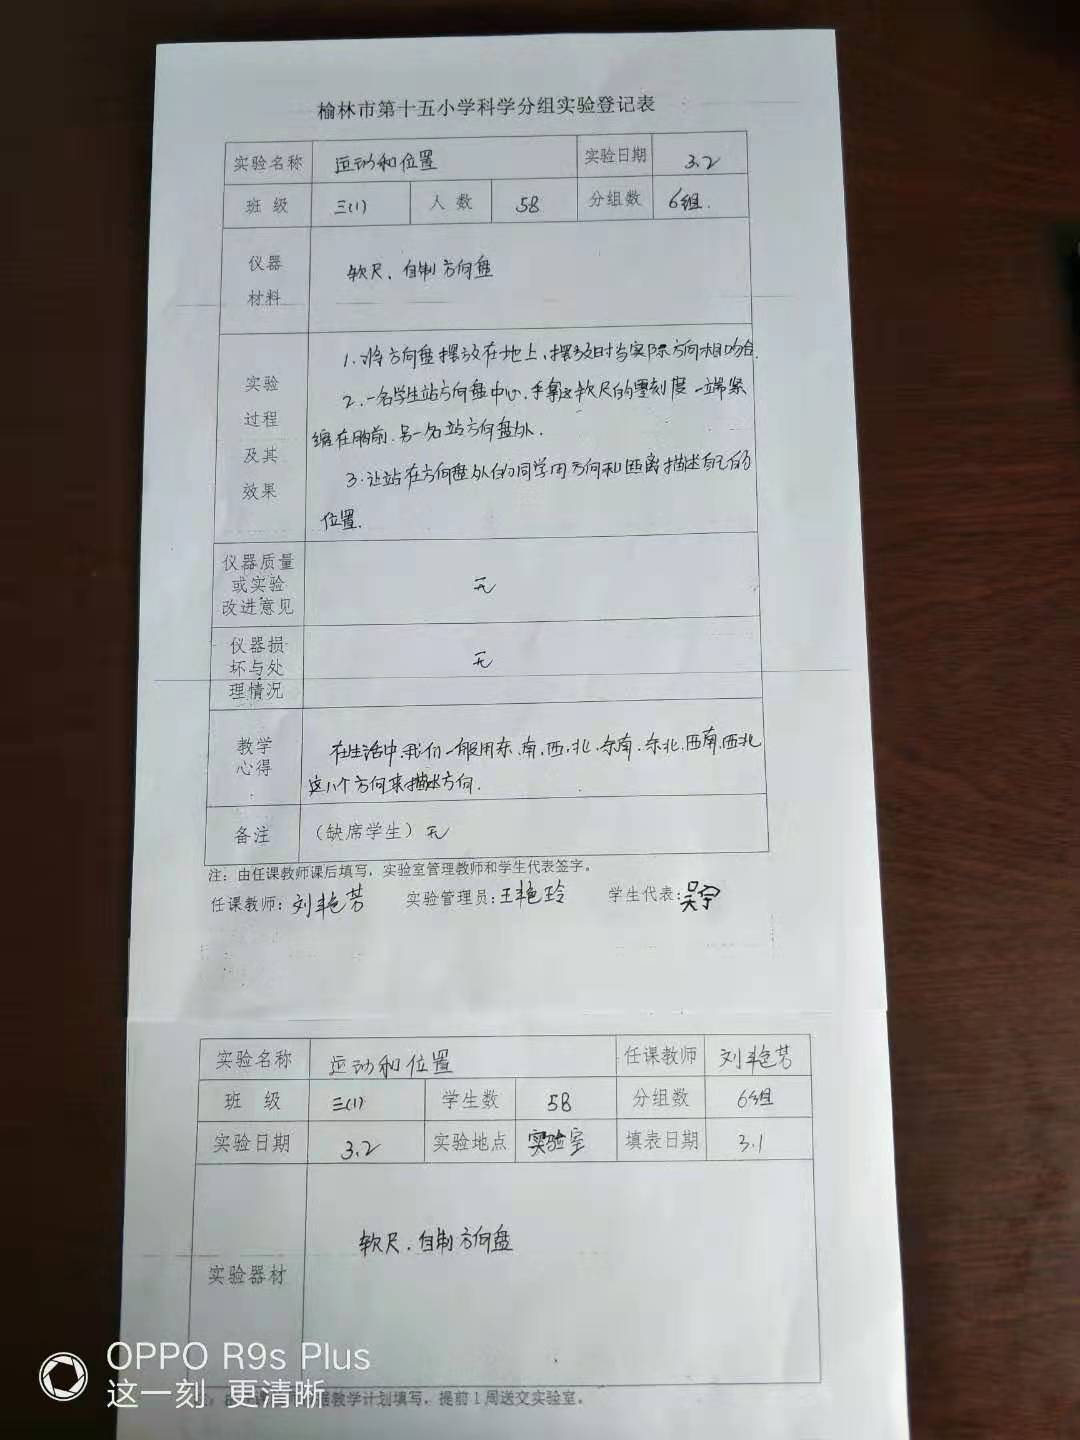 榆林市第十五小学科学分组实验登记表
实验名称 运动和位置 实验日期 3.2
班 级 三(1) 人 数 58 分组数 6组.
仪器
材料
软尺、自制方向盘
实验
过程
及其
效果
1.将方向盘摆放在地上,摆放时当实际方向相吻合.
2.一名学生站方向盘中心,手拿这软尺的零刻度一端紧
缩在胸前.另一名站方向盘外.
3.让站在方向盘外的同学用方向和距离描述自己的
位置.
仪器质量
或实验
改进意见
无
仪器损
坏与处
理情况
无
教学
心得
在生活中,我们一般用东、南、西、北、东南、东北、西南、西北
这八个方向来描述方向.
备注 (缺席学生) 无
注:由任课教师课后填写,实验室管理教师和学生代表签字。
任课教师:刘艳芳 实验管理员:王艳玲 学生代表:吴宇
实验名称 运动和位置 任课教师 刘艳芳
班 级 三(1) 学生数 58 分组数 6组
实验日期 3.2 实验地点 实验室 填表日期 3.1
实验器材
软尺、自制方向盘
教学计划填写,提前1周送交实验室。
OPPO R9s Plus
这一刻 更清晰